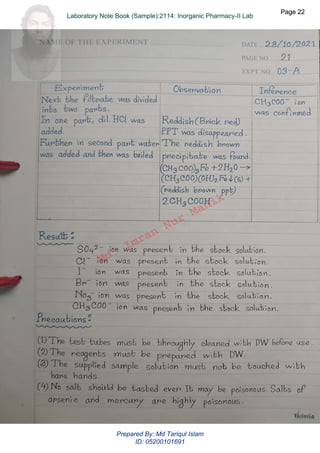 Laboratory Note Book (Sample):2114: Inorganic Pharmacy-II Lab
Page 22
NAME OF THE EXPERIMENT
DATE 28/10/2021
PAGE NO. 21
EXPT NO. 03-A
Experiment Observation Inference
Next the filtrate was divided
into two parts.
In one part, dil. HCl was
added.
Further in second part water
was added and then was boiled
Reddish (Brick red)
PPT was disappeared.
The reddish brown
precipitate was found
(CH3COO)3Fe + 2H2O →
(CH3COO)(OH)2Fe↓(s) +
(reddish brown ppt)
2CH3COOH
CH3COO⁻ ion
was confirmed
Md. Imran Nur Manik
Result:
SO4²⁻ ion was present in the stock solution.
Cl⁻ ion was present in the stock solution.
I⁻ ion was present in the stock solution.
Br⁻ ion was present in the stock solution.
NO3⁻ ion was present in the stock solution.
CH3COO⁻ ion was present in the stock solution.
Precautions:
(1) The test tubes must be throughly cleaned with DW before use.
(2) The reagents must be prepared with DW.
(3) The supplied sample solution must not be touched with
bare hands.
(4) No salt should be tasted ever. It may be poisonous. Salts of
arsenic and mercury are highly poisonous.
Victoria
Prepared By: Md Tariqul Islam
ID: 05200101691